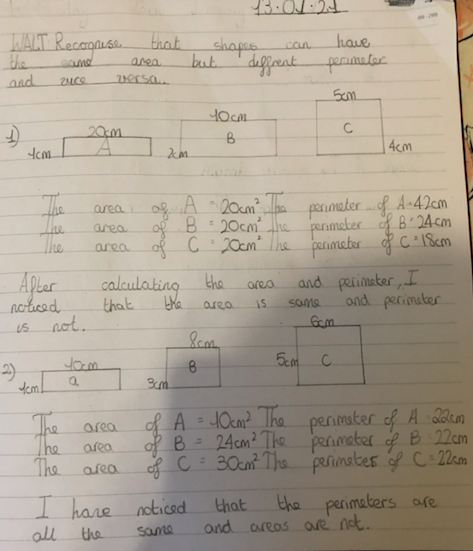 13.01.21
WALT Recognise that shapes can have
the same area but diffrent perimeter
and vice versa.
1) 20cm 10cm 5cm
1cm A 2cm B C 4cm
The area of A = 20cm² The perimeter of A = 42cm
The area of B = 20cm² The perimeter of B = 24cm
The area of C = 20cm² The perimeter of C = 18cm
After calculating the area and perimeter, I
noticed that the area is same and perimeter
is not.
2) 10cm 8cm 6cm
1cm a 3cm B 5cm C
The area of A = 10cm² The perimeter of A = 22cm
The area of B = 24cm² The perimeter of B = 22cm
The area of C = 30cm² The perimeter of C = 22cm
I have noticed that the perimeters are
all the same and areas are not.